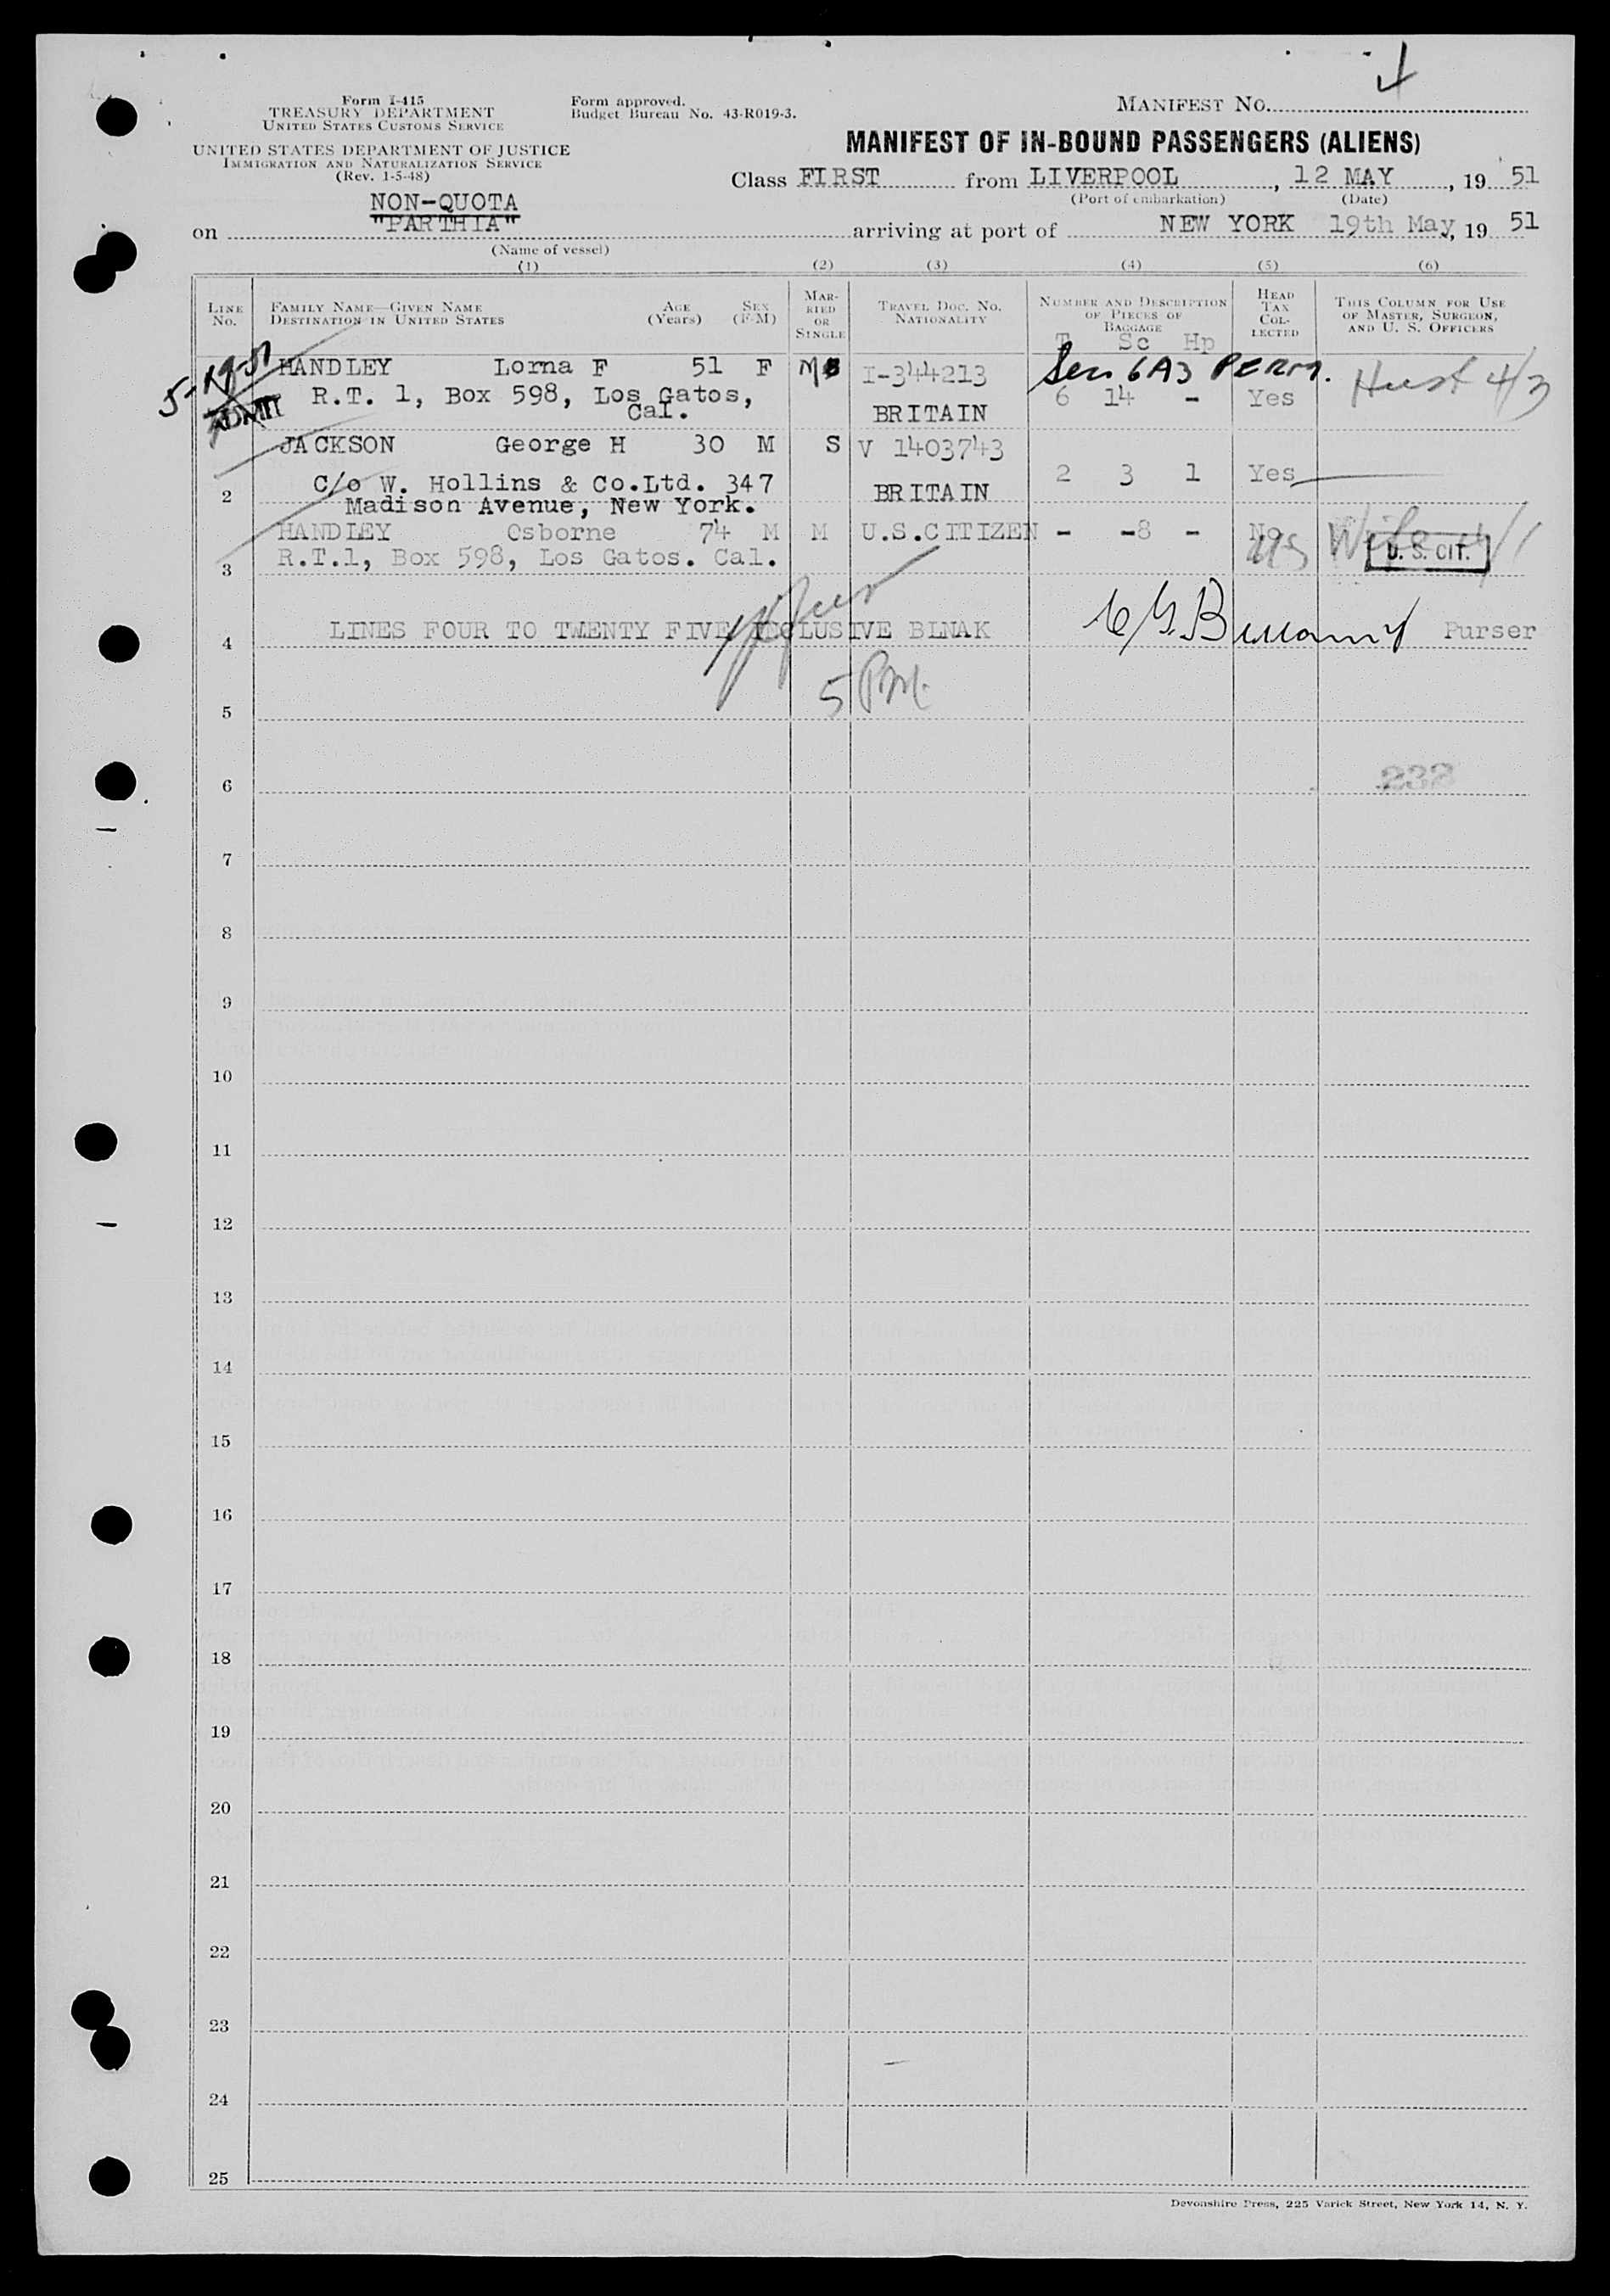 Form I-415
TREASURY DEPARTMENT
UNITED STATES CUSTOMS SERVICE
UNITED STATES DEPARTMENT OF JUSTICE
IMMIGRATION AND NATURALIZATION SERVICE
(Rev. 1-5-48)
Form approved.
Budget Bureau No. 43-R019-3.
MANIFEST NO.
4
MANIFEST OF IN-BOUND PASSENGERS (ALIENS)
Class FIRST from LIVERPOOL, 12 MAY, 19 51
(Port of embarkation) (Date)
NON-QUOTA
on "PARTHIA" arriving at port of NEW YORK 19th May, 19 51
(Name of vessel)
(1) (2) (3) (4) (5) (6)
LINE No. FAMILY NAME—GIVEN NAME DESTINATION IN UNITED STATES AGE (Years) SEX (F-M) MARRIED OR SINGLE TRAVEL DOC. NO. NATIONALITY NUMBER AND DESCRIPTION OF PIECES OF BAGGAGE HEAD TAX COLLECTED THIS COLUMN FOR USE OF MASTER, SURGEON, AND U. S. OFFICERS
T Sc Hp
5-19-51 HANDLEY Lorna F 51 F M I-344213 Sec 6A3 PERM.
ADMIT R.T. 1, Box 598, Los Gatos, Cal. BRITAIN 6 14 - Yes 4/3
JACKSON George H 30 M S V 1403743
2 C/o W. Hollins & Co.Ltd. 347 BRITAIN 2 3 1 Yes
Madison Avenue, New York.
HANDLEY Osborne 74 M M U.S.CITIZEN - -8 - No Wife 4/1
3 R.T.1, Box 598, Los Gatos. Cal. U. S. CIT.
4 LINES FOUR TO TWENTY FIVE INCLUSIVE BLNAK Purser
5 PM.
5
6 232
7
8
9
10
11
12
13
14
15
16
17
18
19
20
21
22
23
24
25
Devonshire Press, 225 Varick Street, New York 14, N. Y.